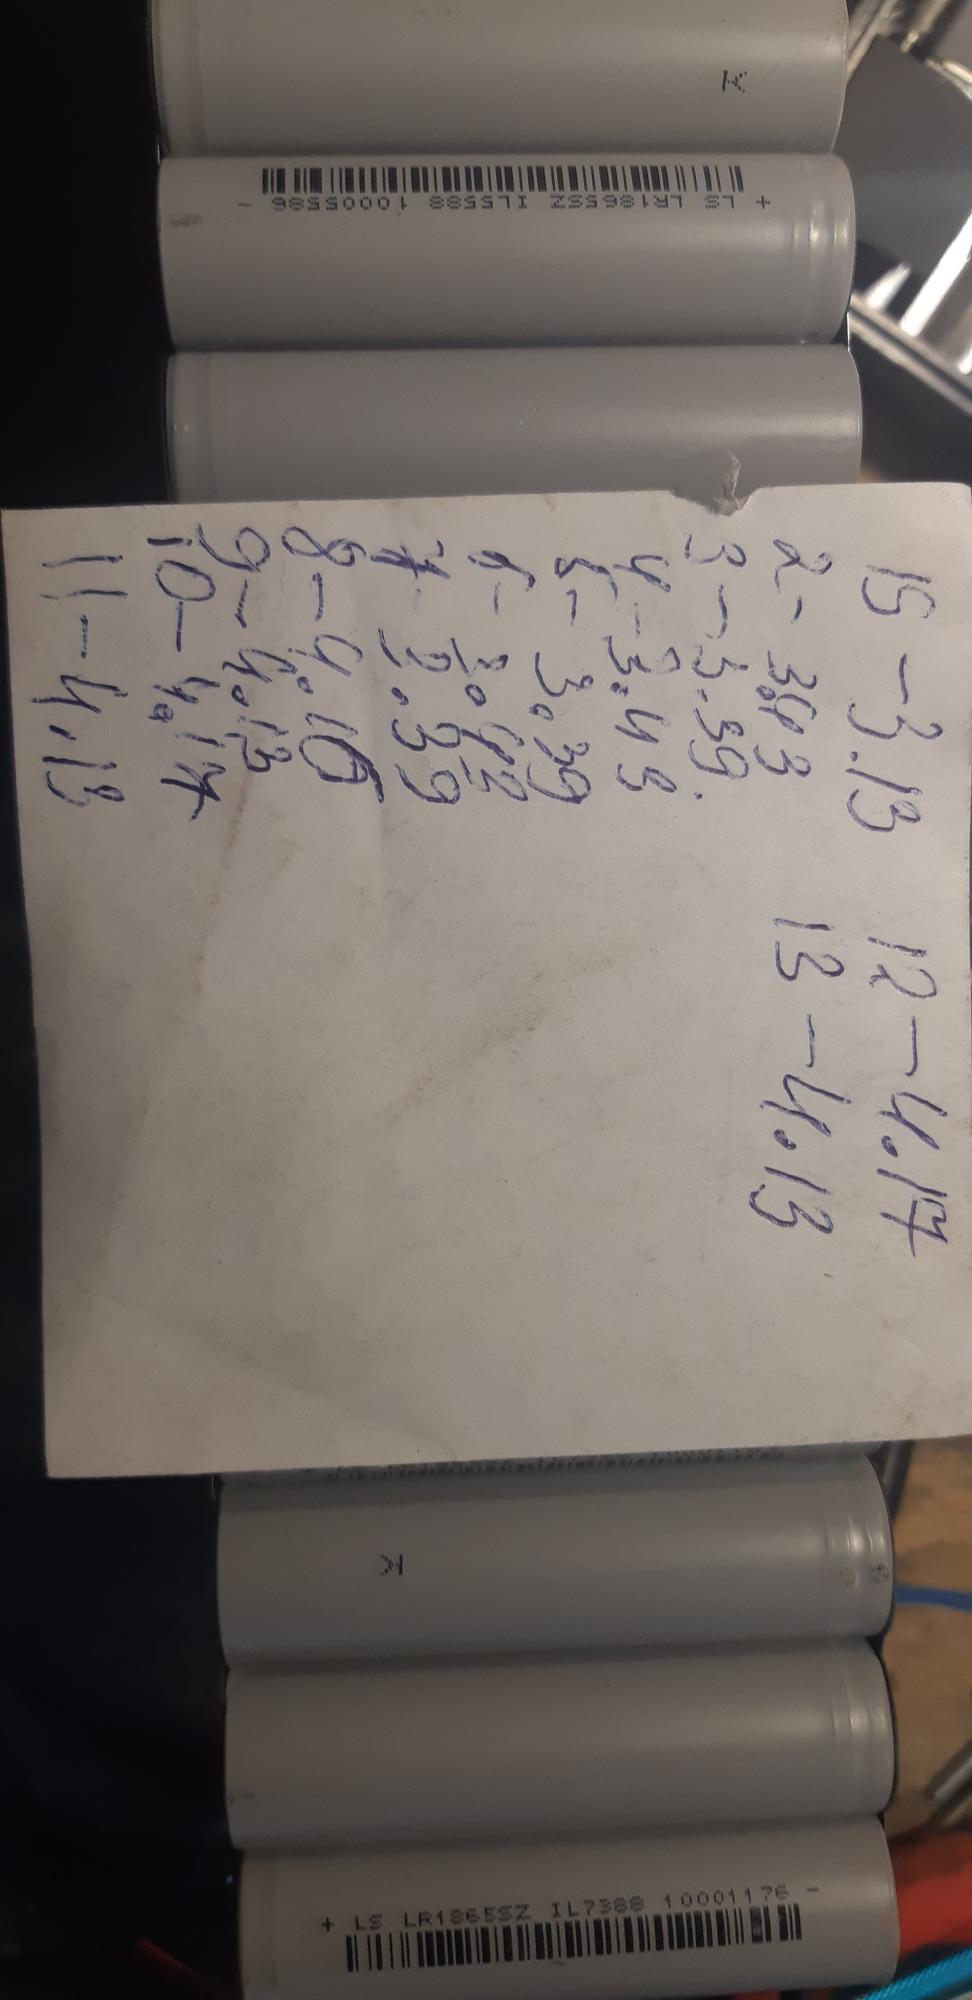 K
+ LS LR1865SZ IL5588 10005586 -
15 - 3.13
2 - 3.43
3 - 3.39.
4 - 3.43
5 - 3.39
6 - 3.42
7 3.39
8 - 4.16
9 - 4.13
10 - 4.17
11 - 4.13
12 - 4.17
13 - 4.13
K
+ LS LR1865SZ IL7388 10001176 -